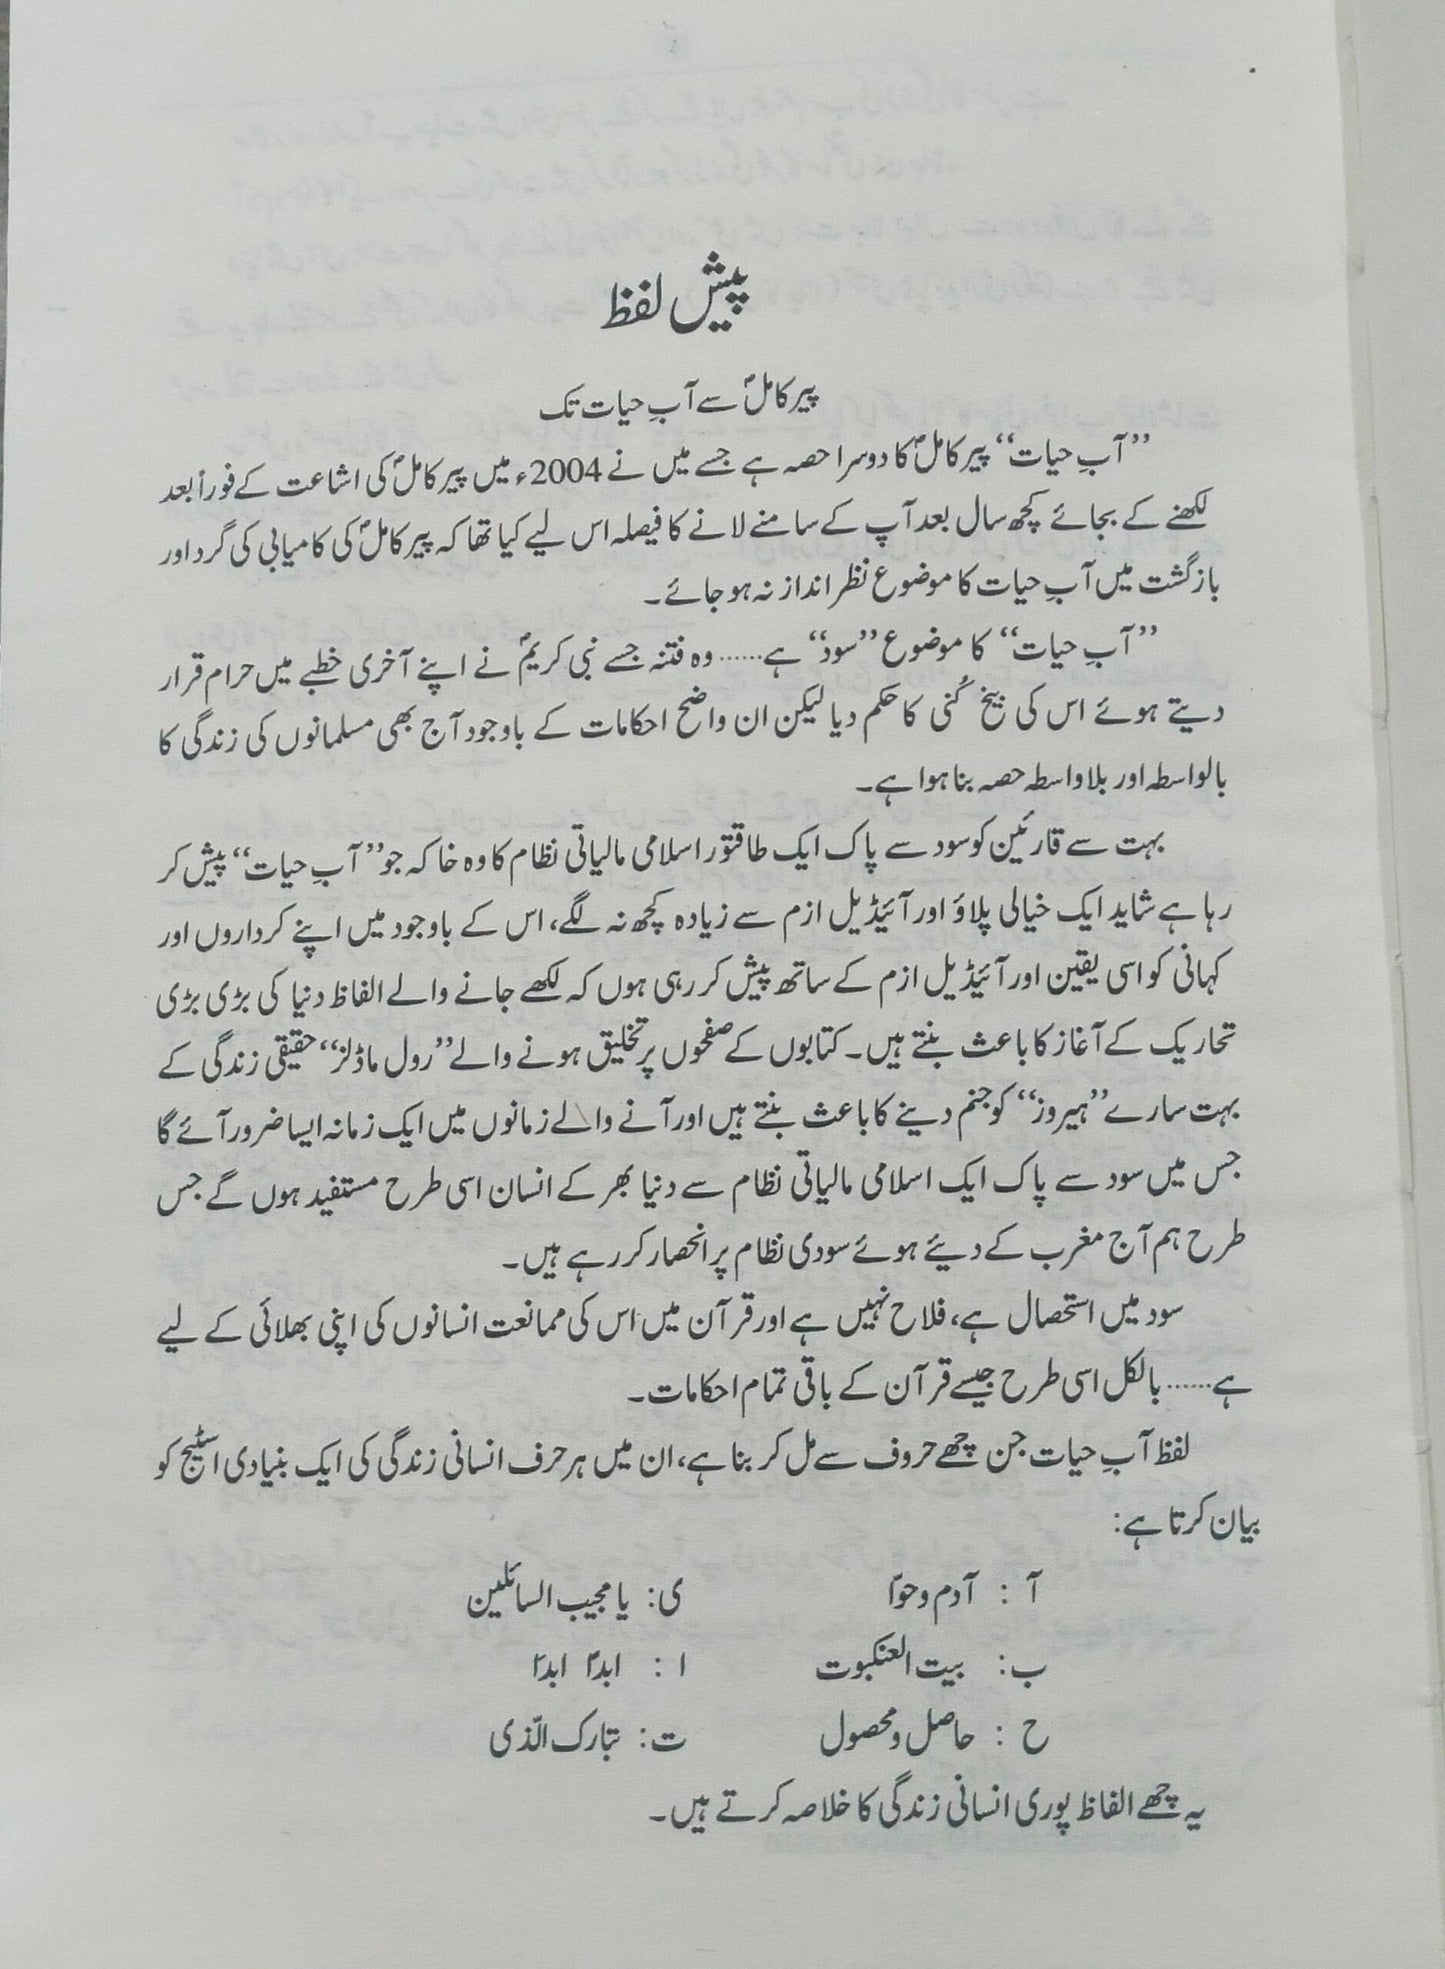 پیش لفظ
پیر کاملؐ سے آبِ حیات تک
”آبِ حیات“ پیر کاملؐ کا دوسرا حصہ ہے جسے میں نے 2004ء میں پیر کاملؐ کی اشاعت کے فوراً بعد
لکھنے کے بجائے کچھ سال بعد آپ کے سامنے لانے کا فیصلہ اس لیے کیا تھا کہ پیر کاملؐ کی کامیابی کی گرد اور
بازگشت میں آبِ حیات کا موضوع نظر انداز نہ ہو جائے۔
”آبِ حیات“ کا موضوع ”سود“ ہے...... وہ فتنہ جسے نبی کریمؐ نے اپنے آخری خطبے میں حرام قرار
دیتے ہوئے اس کی بیخ کُنی کا حکم دیا لیکن ان واضح احکامات کے باوجود آج بھی مسلمانوں کی زندگی کا
بالواسطہ اور بلاواسطہ حصہ بنا ہوا ہے۔
بہت سے قارئین کو سود سے پاک ایک طاقتور اسلامی مالیاتی نظام کا وہ خاکہ جو ”آبِ حیات“ پیش کر
رہا ہے شاید ایک خیالی پلاؤ اور آئیڈیل ازم سے زیادہ کچھ نہ لگے، اس کے باوجود میں اپنے کرداروں اور
کہانی کو اسی یقین اور آئیڈیل ازم کے ساتھ پیش کر رہی ہوں کہ لکھے جانے والے الفاظ دنیا کی بڑی بڑی
تحاریک کے آغاز کا باعث بنتے ہیں۔ کتابوں کے صفحوں پر تخلیق ہونے والے ”رول ماڈلز“ حقیقی زندگی کے
بہت سارے ”ہیروز“ کو جنم دینے کا باعث بنتے ہیں اور آنے والے زمانوں میں ایک زمانہ ایسا ضرور آئے گا
جس میں سود سے پاک ایک اسلامی مالیاتی نظام سے دنیا بھر کے انسان اسی طرح مستفید ہوں گے جس
طرح ہم آج مغرب کے دیئے ہوئے سودی نظام پر انحصار کر رہے ہیں۔
سود میں استحصال ہے، فلاح نہیں ہے اور قرآن میں اس کی ممانعت انسانوں کی اپنی بھلائی کے لیے
ہے...... بالکل اسی طرح جیسے قرآن کے باقی تمام احکامات۔
لفظ آبِ حیات جن چھے حروف سے مل کر بنا ہے، ان میں ہر حرف انسانی زندگی کی ایک بنیادی اسٹیج کو
بیان کرتا ہے:
آ : آدم و حوّا ی: یا مجیب السائلین
ب: بیت العنکبوت ا : ابداً ابداً
ح : حاصل و محصول ت: تبارک الّذی
یہ چھے الفاظ پوری انسانی زندگی کا خلاصہ کرتے ہیں۔